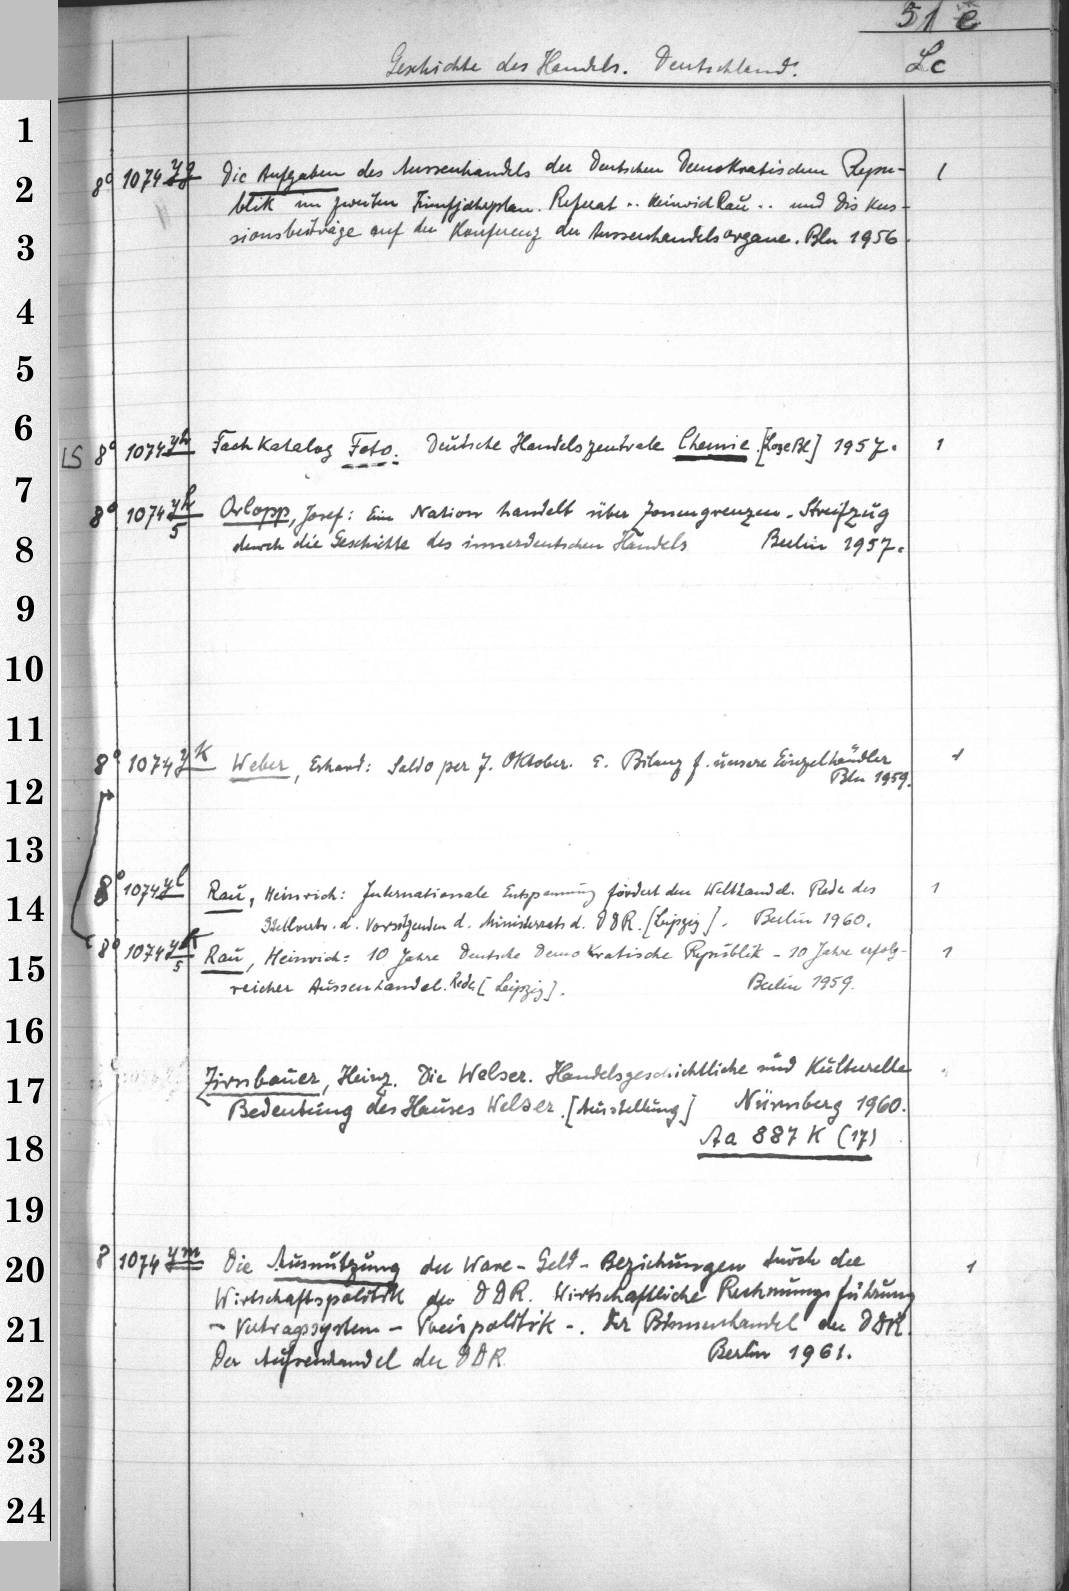 51 e
Geschichte des Handels. Deutschland. Lc
1
2
3
4
5
6
7
8
9
10
11
12
13
14
15
16
17
18
19
20
21
22
23
24
8° 1074 yg Die Aufgaben des Aussenhandels der Deutschen Demokratischen Repu- 1
blik im zweiten Fünfjahrplan. Referat .. Heinrich Rau .. und Diskus-
sionsbeiträge auf der Konferenz der Aussenhandelsorgane. Bln 1956.
LS 8° 1074 yh Fachkatalog Foto. Deutsche Handelszentrale Chemie. [Lose Bl] 1957. 1
8° 1074 yh/5 Orlopp, Josef: Eine Nation handelt über Zonengrenzen. Streifzug
durch die Geschichte des innerdeutschen Handels Berlin 1957.
8° 1074 yk Weber, Erhard: Saldo per 7. Oktober. E. Bilanz f. unsere Einzelhändler 1
Bln 1959.
8° 1074 yl Rau, Heinrich: Internationale Entspannung fördert den Welthandel. Rede des 1
Stellvertr. d. Vorsitzenden d. Ministerrats d. DDR. [Leipzig]. Berlin 1960.
8° 1074 yk/5 Rau, Heinrich: 10 Jahre Deutsche Demokratische Republik - 10 Jahre erfolg- 1
reicher Aussenhandel. Rede [Leipzig]. Berlin 1959.
Zirnbauer, Heinz. Die Welser. Handelsgeschichtliche und Kulturelle
Bedeutung des Hauses Welser. [Ausstellung] Nürnberg 1960.
Aa 887 K (17)
8 1074 ym Die Ausnutzung der Ware-Geld-Beziehungen durch die 1
Wirtschaftspolitik der DDR. Wirtschaftliche Rechnungsführung
- Vertragssystem - Preispolitik -. Der Binnenhandel der DDR.
Der Außenhandel der DDR. Berlin 1961.